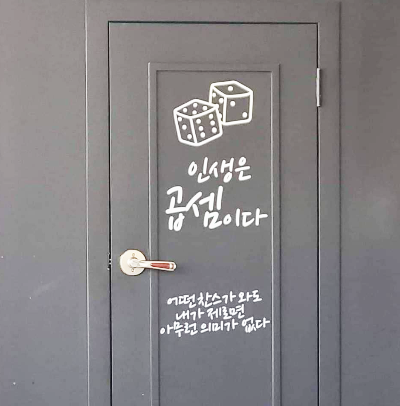 인생은
곱셈이다
어떤 찬스가 와도
내가 제로면
아무런 의미가 없다